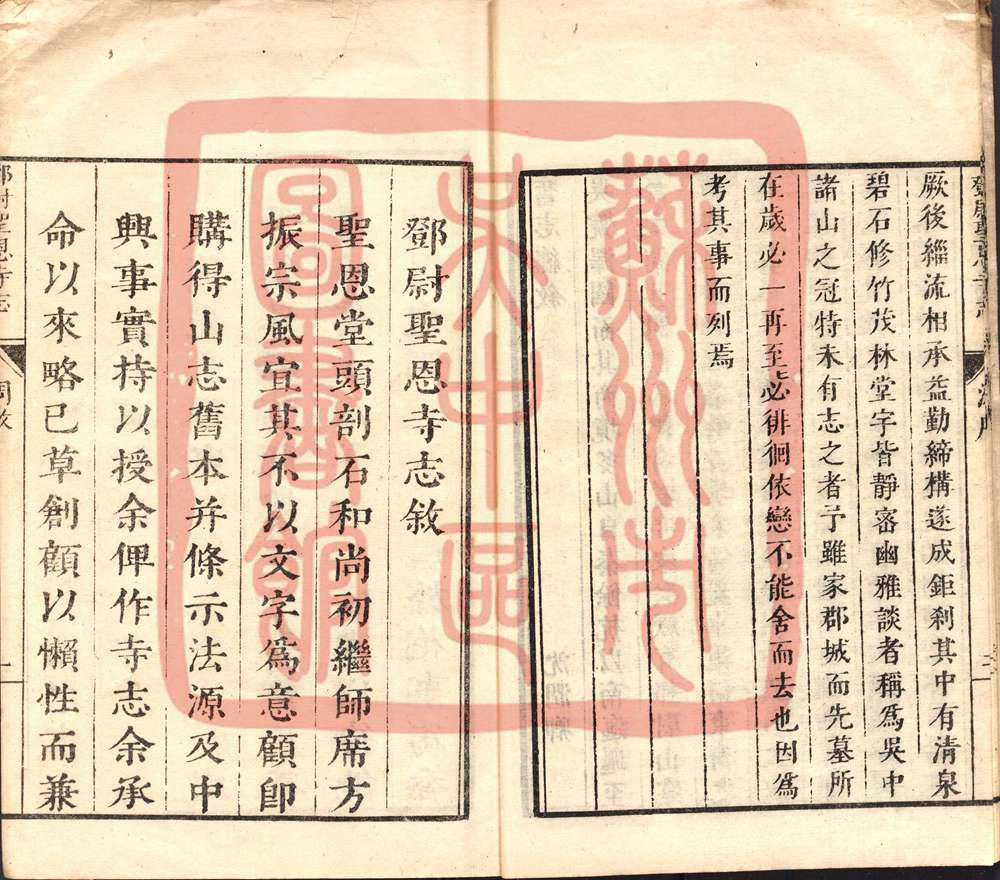 厥後緇流相承益勤締構遂成鉅剎其中有清泉
碧石修竹茂林堂宇皆靜密幽雅談者稱爲吳中
諸山之冠特未有志之者予雖家郡城而先墓所
在歲必一再至必徘徊依戀不能舍而去也因爲
考其事而列焉
鄧尉聖恩寺志敘
聖恩堂頭剖石和尚初繼師席方
振宗風宜其不以文字爲意顧卽
購得山志舊本并條示法源及中
興事實持以授余俾作寺志余承
命以來略已草創顧以懶性而兼
鄧尉聖恩寺志
周敘
一
蘇州市
吳中區
圖書館